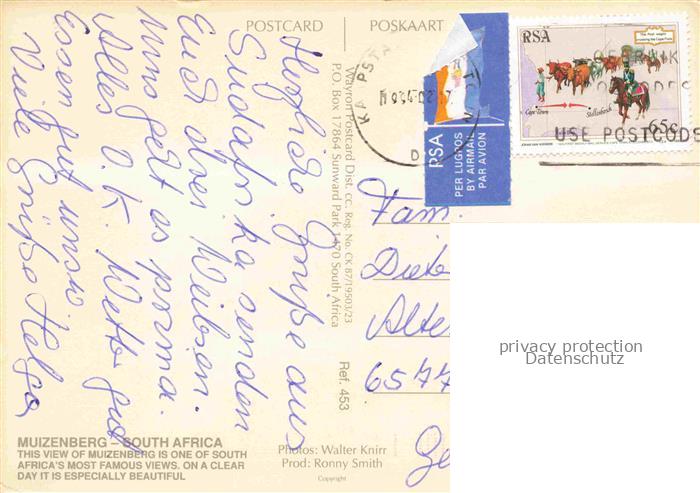 POSTCARD | POSKAART
Herzliche Grüße aus
Südafrika senden
Euch drei Weibsen.
Uns geht es prima.
Alles O.K. Wetter gut
Essen gut usw.
Viele Grüße Helga
Wayron Postcard Dist. CC. Reg. No. CK 87/19503/23
P.O. Box 17864 Sunward Park 1470 South Africa
Ref. 453
KAAPSTAD
RSA
PER LUGPOS
BY AIRMAIL
PAR AVION
RSA
Cape Town
Stellenbosch
65c
USE POSTCODES
Fam.
Diete
Alte
6577
Ge
privacy protection
Datenschutz
MUIZENBERG – SOUTH AFRICA
THIS VIEW OF MUIZENBERG IS ONE OF SOUTH
AFRICA'S MOST FAMOUS VIEWS. ON A CLEAR
DAY IT IS ESPECIALLY BEAUTIFUL
Photos: Walter Knirr
Prod: Ronny Smith
Copyright